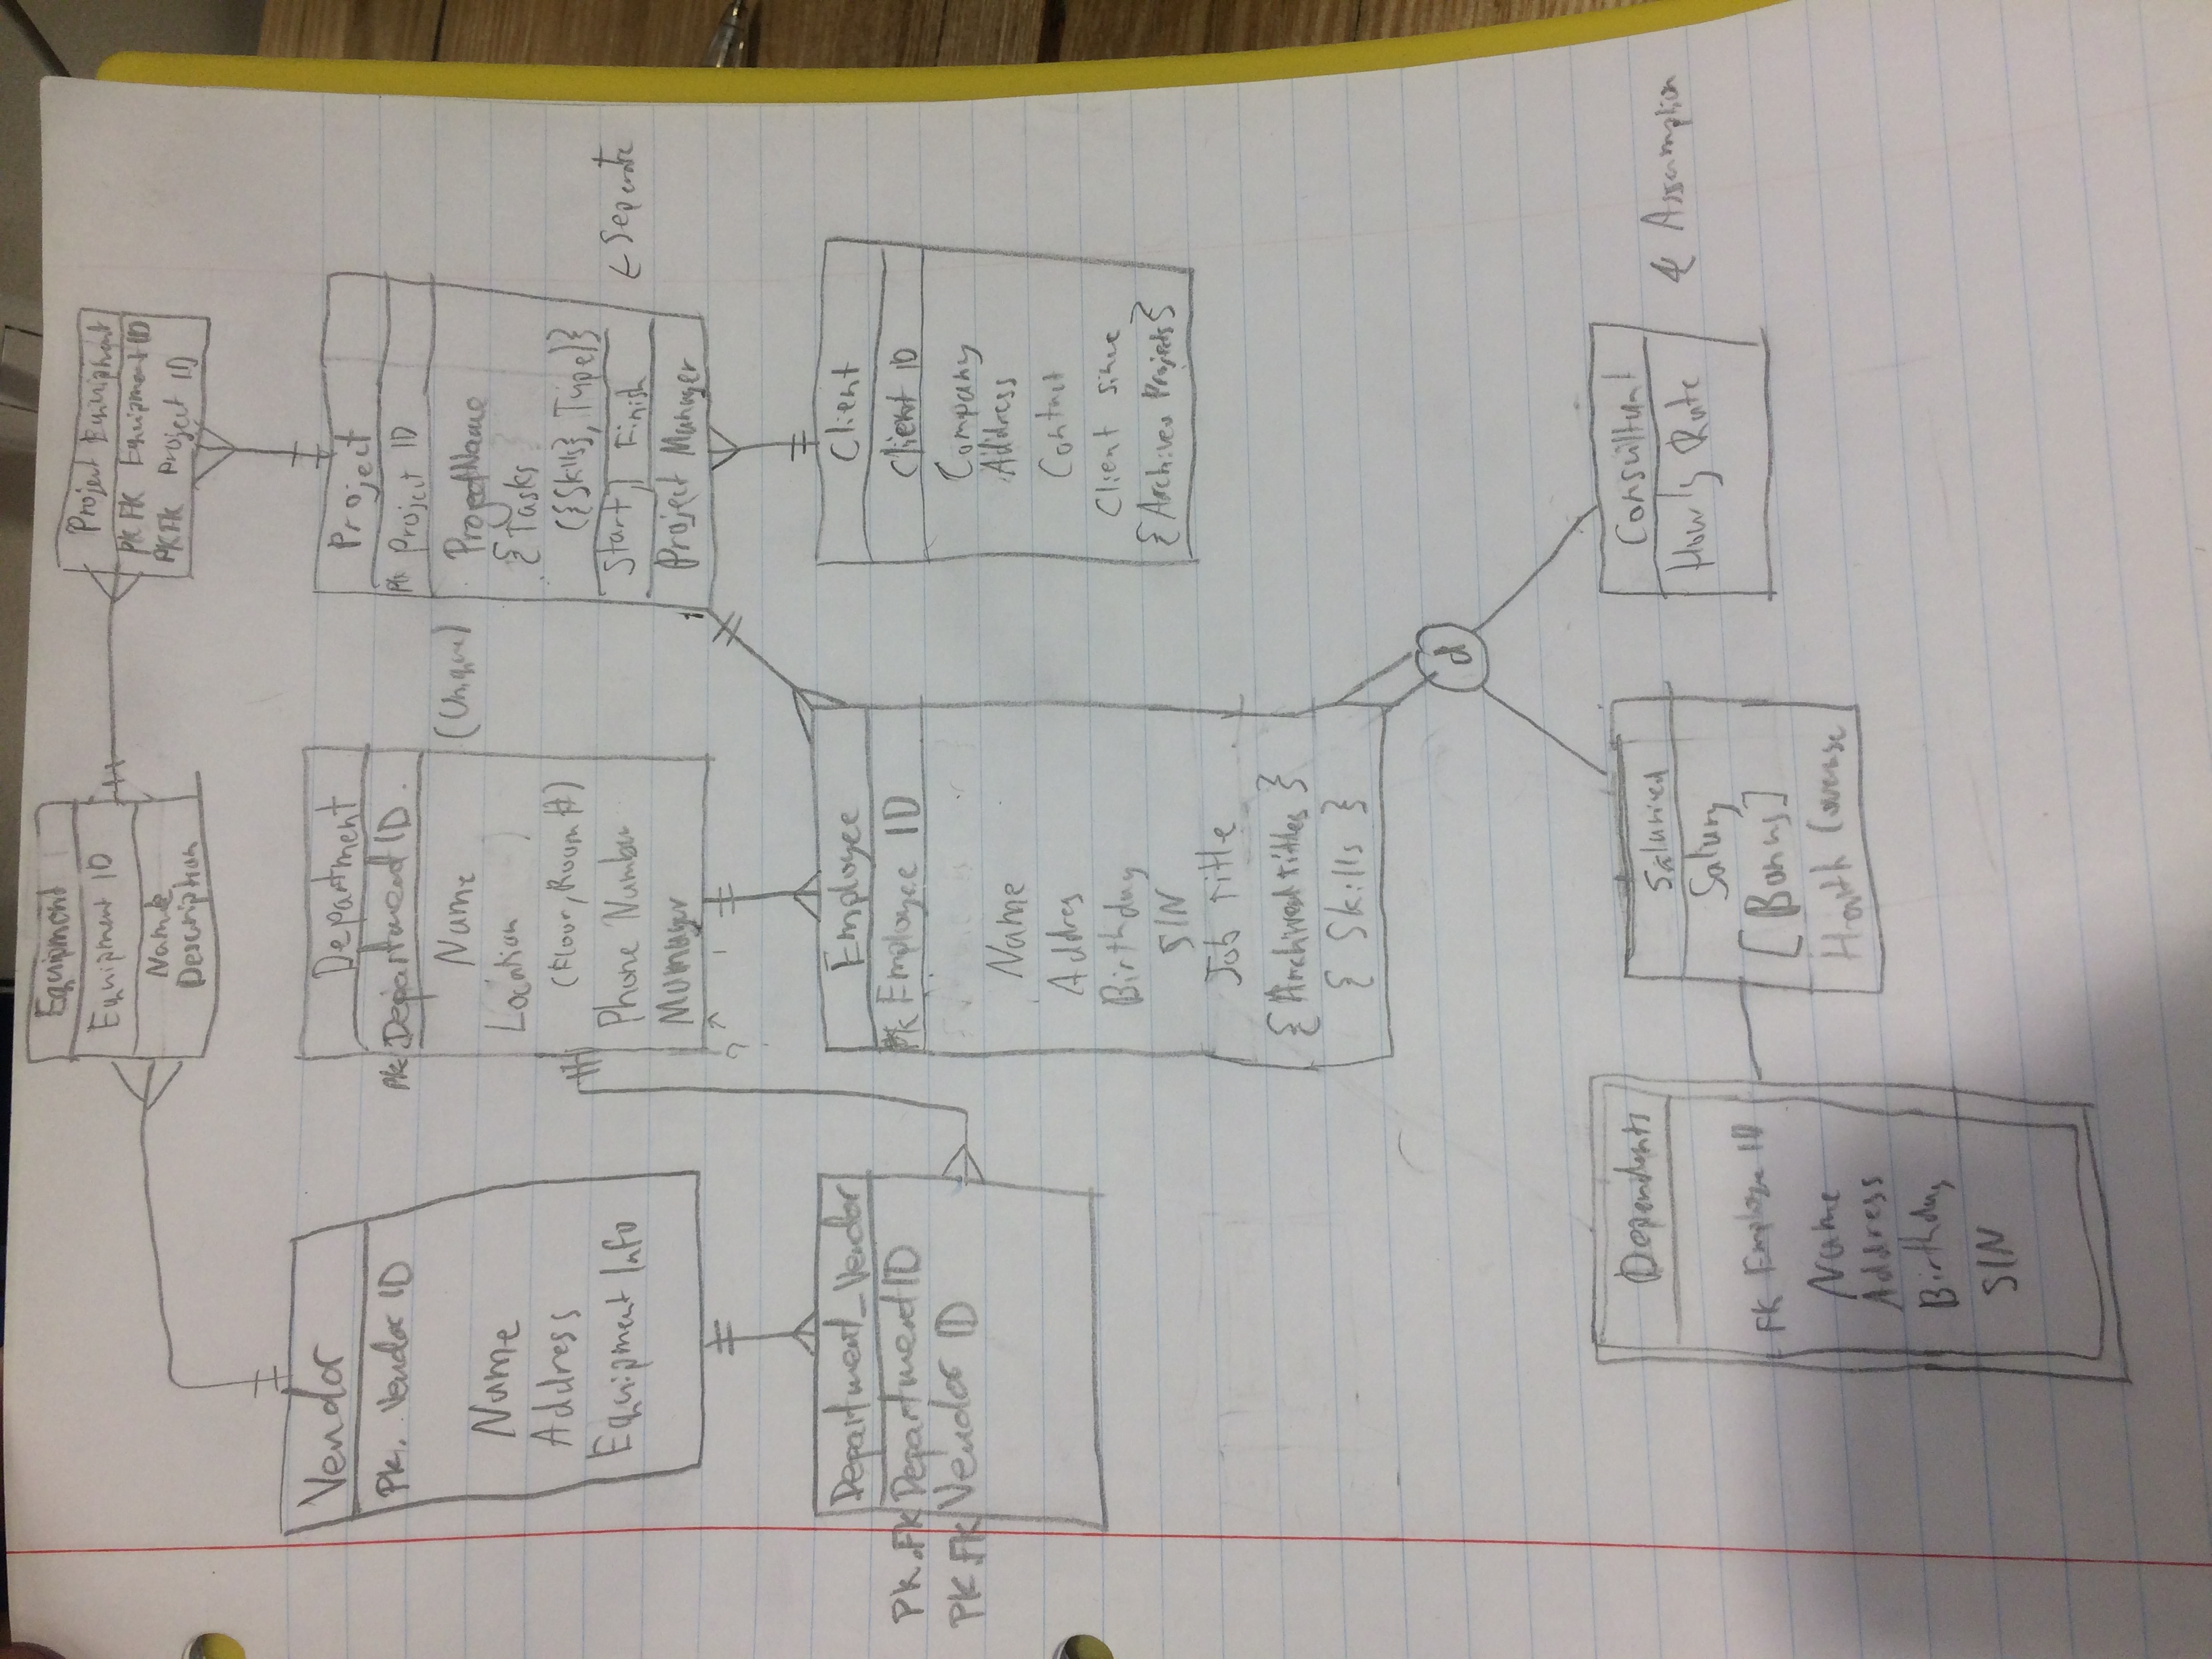 Equipment
Equipment ID
Name
Description
Project Equipment
PK FK Equipment ID
PK FK Project ID
Vendor
PK. Vendor ID
Name
Address
Equipment Info
Department
PK Department ID.
Name (Unique)
Location
(Floor, Room #)
Phone Number
Manager
?
Project
PK Project ID
Project Name
{Tasks
({Skills}, Type)}
Start Finish ← Seperate
Project Manager
Department_Vendor
PK.FK Department ID
PK.FK Vendor ID
Employee
PK Employee ID
Name
Addres
Birthday
SIN
Job Title
{Archived titles}
{Skills}
Client
Client ID
Company
Address
Contact
Client since
{Archived Projects}
d
Dependents
FK Employee ID
Name
Address
Birthday
SIN
Salaried
Salary
[Bonus]
Health Coverage
Consultant
Hourly Rate
Assumption